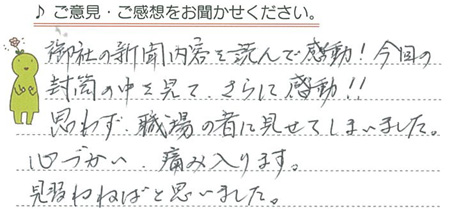 ♪ ご意見・ご感想をお聞かせください。
御社の新聞内容を読んで感動!今回の
封筒の中を見て、さらに感動!!
思わず、職場の者に見せてしまいました。
心づかい、痛み入ります。
見習わねばと思いました。